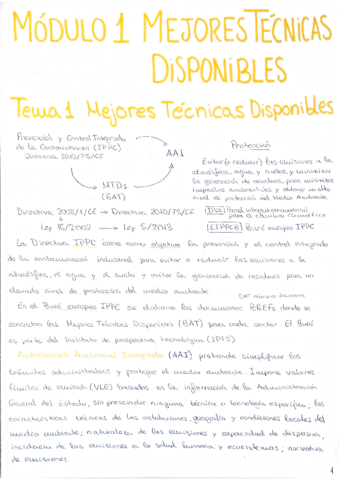 MÓDULO 1 MEJORES TÉCNICAS
DISPONIBLES
Tema 1 Mejores Técnicas Disponibles
Prevención y Control Integrado
de la Contaminación (IPPC)
Directiva 2010/75/CE
AAI
MTDs
(BAT)
Protección
Evitar (o reducir) las emisiones a la
atmósfera, agua y suelos, y minimizar
la generación de residuos, para minimizar
impactos ambientales y obtener un alto
nivel de protección del Medio Ambiente
Directiva 2008/1/CE → Directiva 2010/75/CE
Panel intergubernamental
para el cambio climático
Ley 16/2002 → Ley 5/2013
EIPPCB Buró europeo IPPC
La Directiva IPPC tiene como objetivo la prevención y el control integrado
de la contaminación industrial para evitar o reducir las emisiones a la
atmósfera, el agua y el suelo y evitar la generación de residuos para un
elevado nivel de protección del medio ambiente.
BAT reference document
En el Buró europeo IPPC se elaboran los documentos BREFs donde se
concretan las Mejores Técnicas Disponibles (BAT) para cada sector. El Buró
es parte del Instituto de prospectiva tecnológica (IPTS)
Autorización Ambiental Integrada (AAI) pretende simplificar los
trámites administrativos y proteger el medio ambiente. Impone valores
límites de emisión (VLE) basados en la información de la Administración
General del Estado, sin prescindir ninguna técnica o tecnología específica, las
características técnicas de las instalaciones, geografía y condiciones locales del
medio ambiente; naturaleza de las emisiones y capacidad de dispersión,
incidencia de las emisiones a la salud humana y ecosistemas; normativa
de emisiones.
1